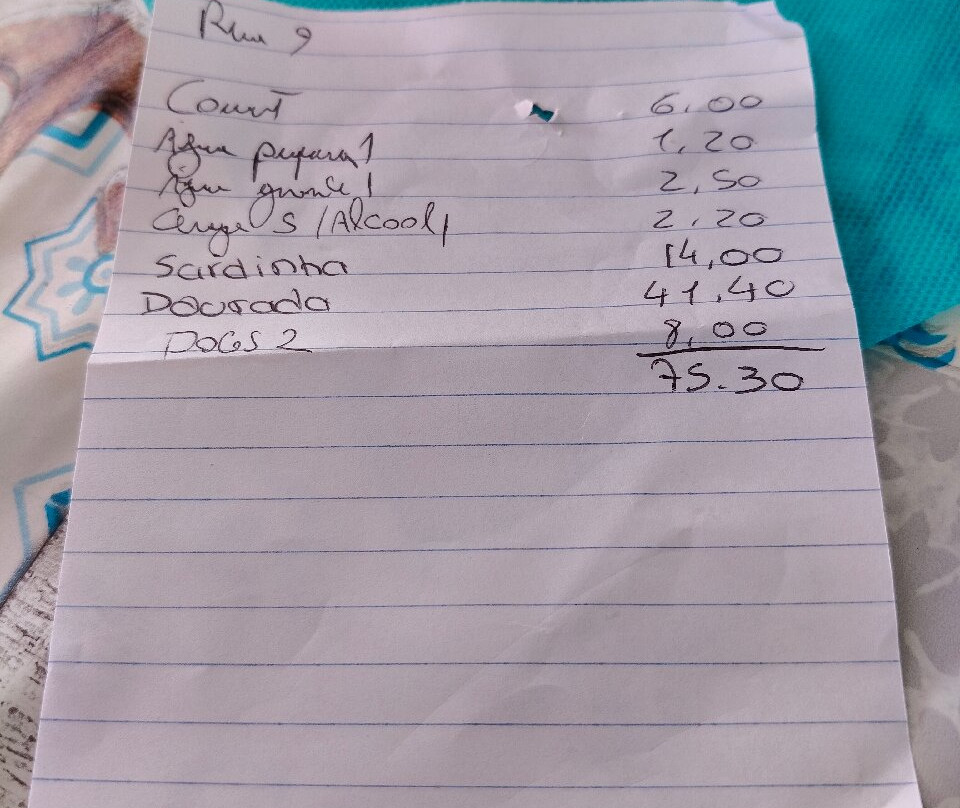 Rua 9
Couvt 6,00
Agua pequena 1 1,20
Agua grande 1 2,50
Cerveja S/Alcool 1 2,20
Sardinha 14,00
Dourada 41,40
DOCES 2 8,00
75.30